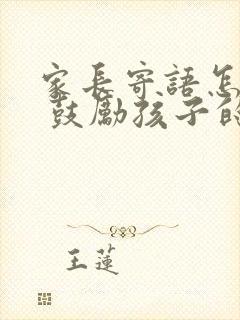 家長寄語怎
鼓勵孩子的
王蓮